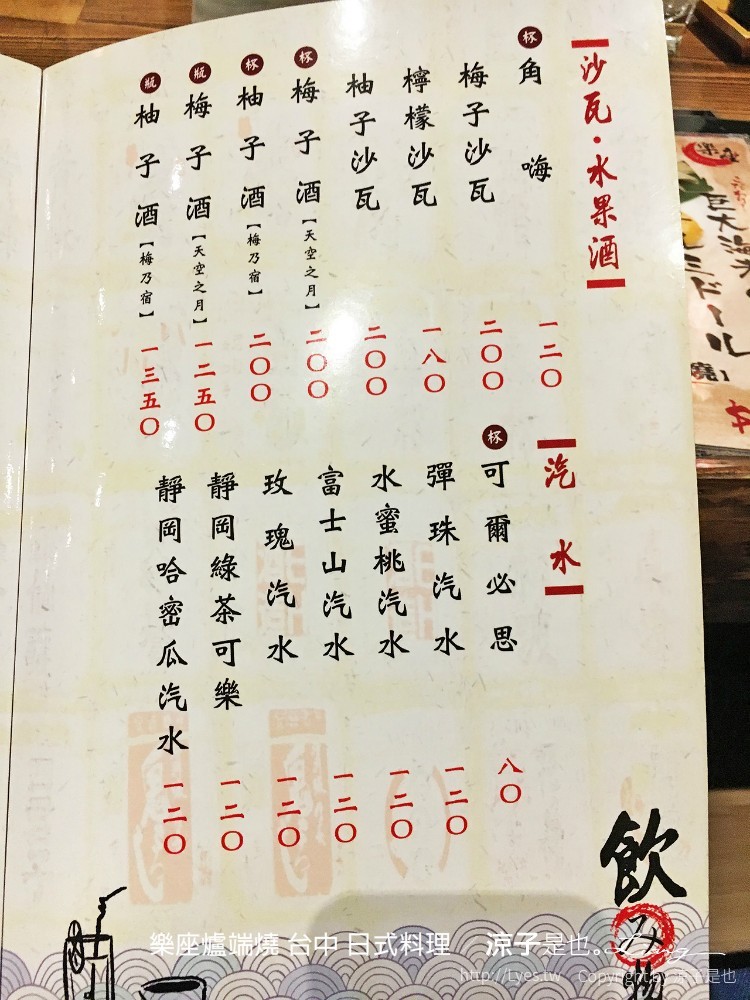 沙瓦・水果酒
杯 角嗨 一二〇
梅子沙瓦 二〇〇
檸檬沙瓦 一八〇
柚子沙瓦 二〇〇
杯 梅子酒【天空之月】 二〇〇
杯 柚子酒【梅乃宿】 二〇〇
瓶 梅子酒【天空之月】 一二五〇
瓶 柚子酒【梅乃宿】 一三五〇
汽水
杯 可爾必思 八〇
彈珠汽水 一二〇
水蜜桃汽水 一二〇
富士山汽水 一二〇
玫瑰汽水 一二〇
靜岡綠茶可樂 一二〇
靜岡哈密瓜汽水 一二〇
飲み物
巨大海老
ミドール
燒】
樂座爐端燒 台中 日式料理 涼子是也。
http://Lyes.tw Copyright by 涼子是也